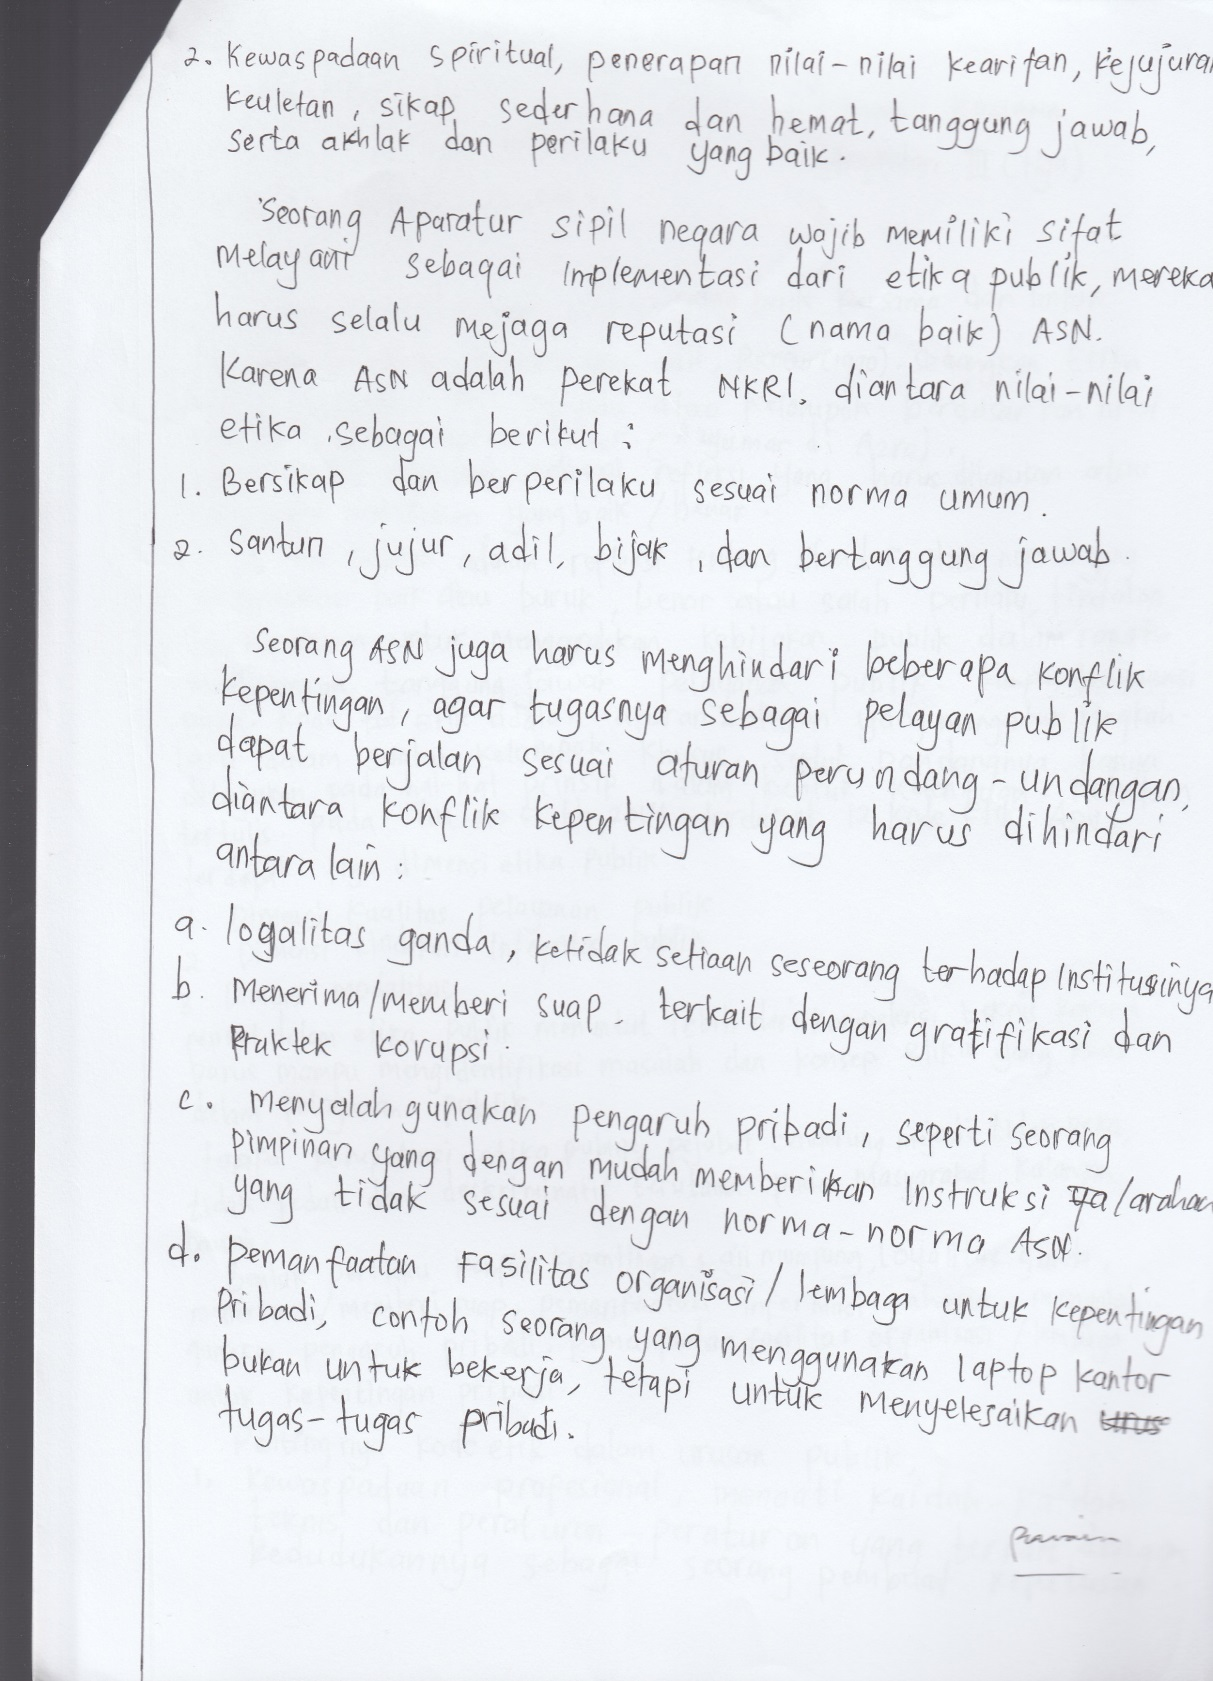 2. Kewaspadaan spiritual, penerapan nilai-nilai kearifan, kejujuran
keuletan, sikap sederhana dan hemat, tanggung jawab,
serta akhlak dan perilaku yang baik.
Seorang Aparatur sipil negara wajib memiliki sifat
melayani sebagai implementasi dari etika publik, mereka
harus selalu mejaga reputasi (nama baik) ASN.
Karena ASN adalah perekat NKRI, diantara nilai-nilai
etika sebagai berikut :
1. Bersikap dan berperilaku sesuai norma umum.
2. Santun, jujur, adil, bijak, dan bertanggung jawab.
Seorang ASN juga harus menghindari beberapa konflik
kepentingan, agar tugasnya sebagai pelayan publik
dapat berjalan sesuai aturan perundang-undangan,
diantara konflik kepentingan yang harus dihindari
antara lain :
a. logalitas ganda, ketidak setiaan seseorang terhadap Institusinya
b. Menerima/memberi suap. terkait dengan gratifikasi dan
Praktek korupsi.
c. Menyalah gunakan pengaruh pribadi, seperti seorang
pimpinan yang dengan mudah memberikan Instruksi /arahan
yang tidak sesuai dengan norma-norma ASN.
d. Pemanfaatan Fasilitas organisasi/lembaga untuk kepentingan
Pribadi, contoh seorang yang menggunakan laptop kantor
bukan untuk bekerja, tetapi untuk menyelesaikan
tugas-tugas pribadi.